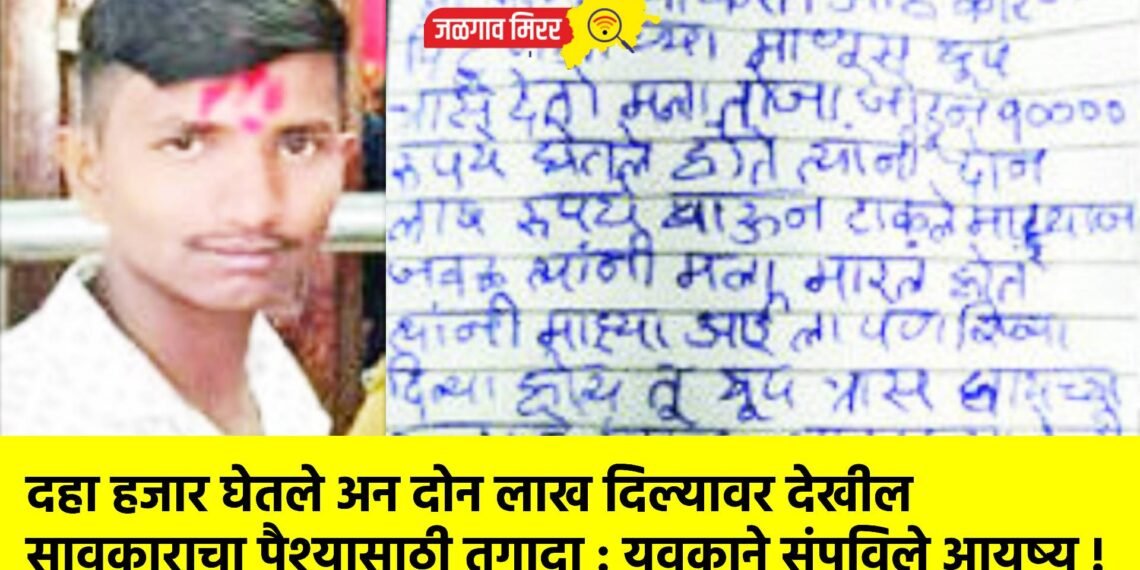 जळगाव मिरर
माणूस खूप
त्रास देतो मला जोडून १००००
रुपये घेतले होते त्यांनी दोन
लाख रुपये खाऊन टाकले माझ्यान
जवळ त्यांनी मला मारल होत
त्यांनी माझ्या आई ला पण शिव्या
दिल्या होत्य तू खूप त्रास
दहा हजार घेतले अन दोन लाख दिल्यावर देखील
सावकाराचा पैश्यासाठी तगादा : युवकाने संपविले आयुष्य !